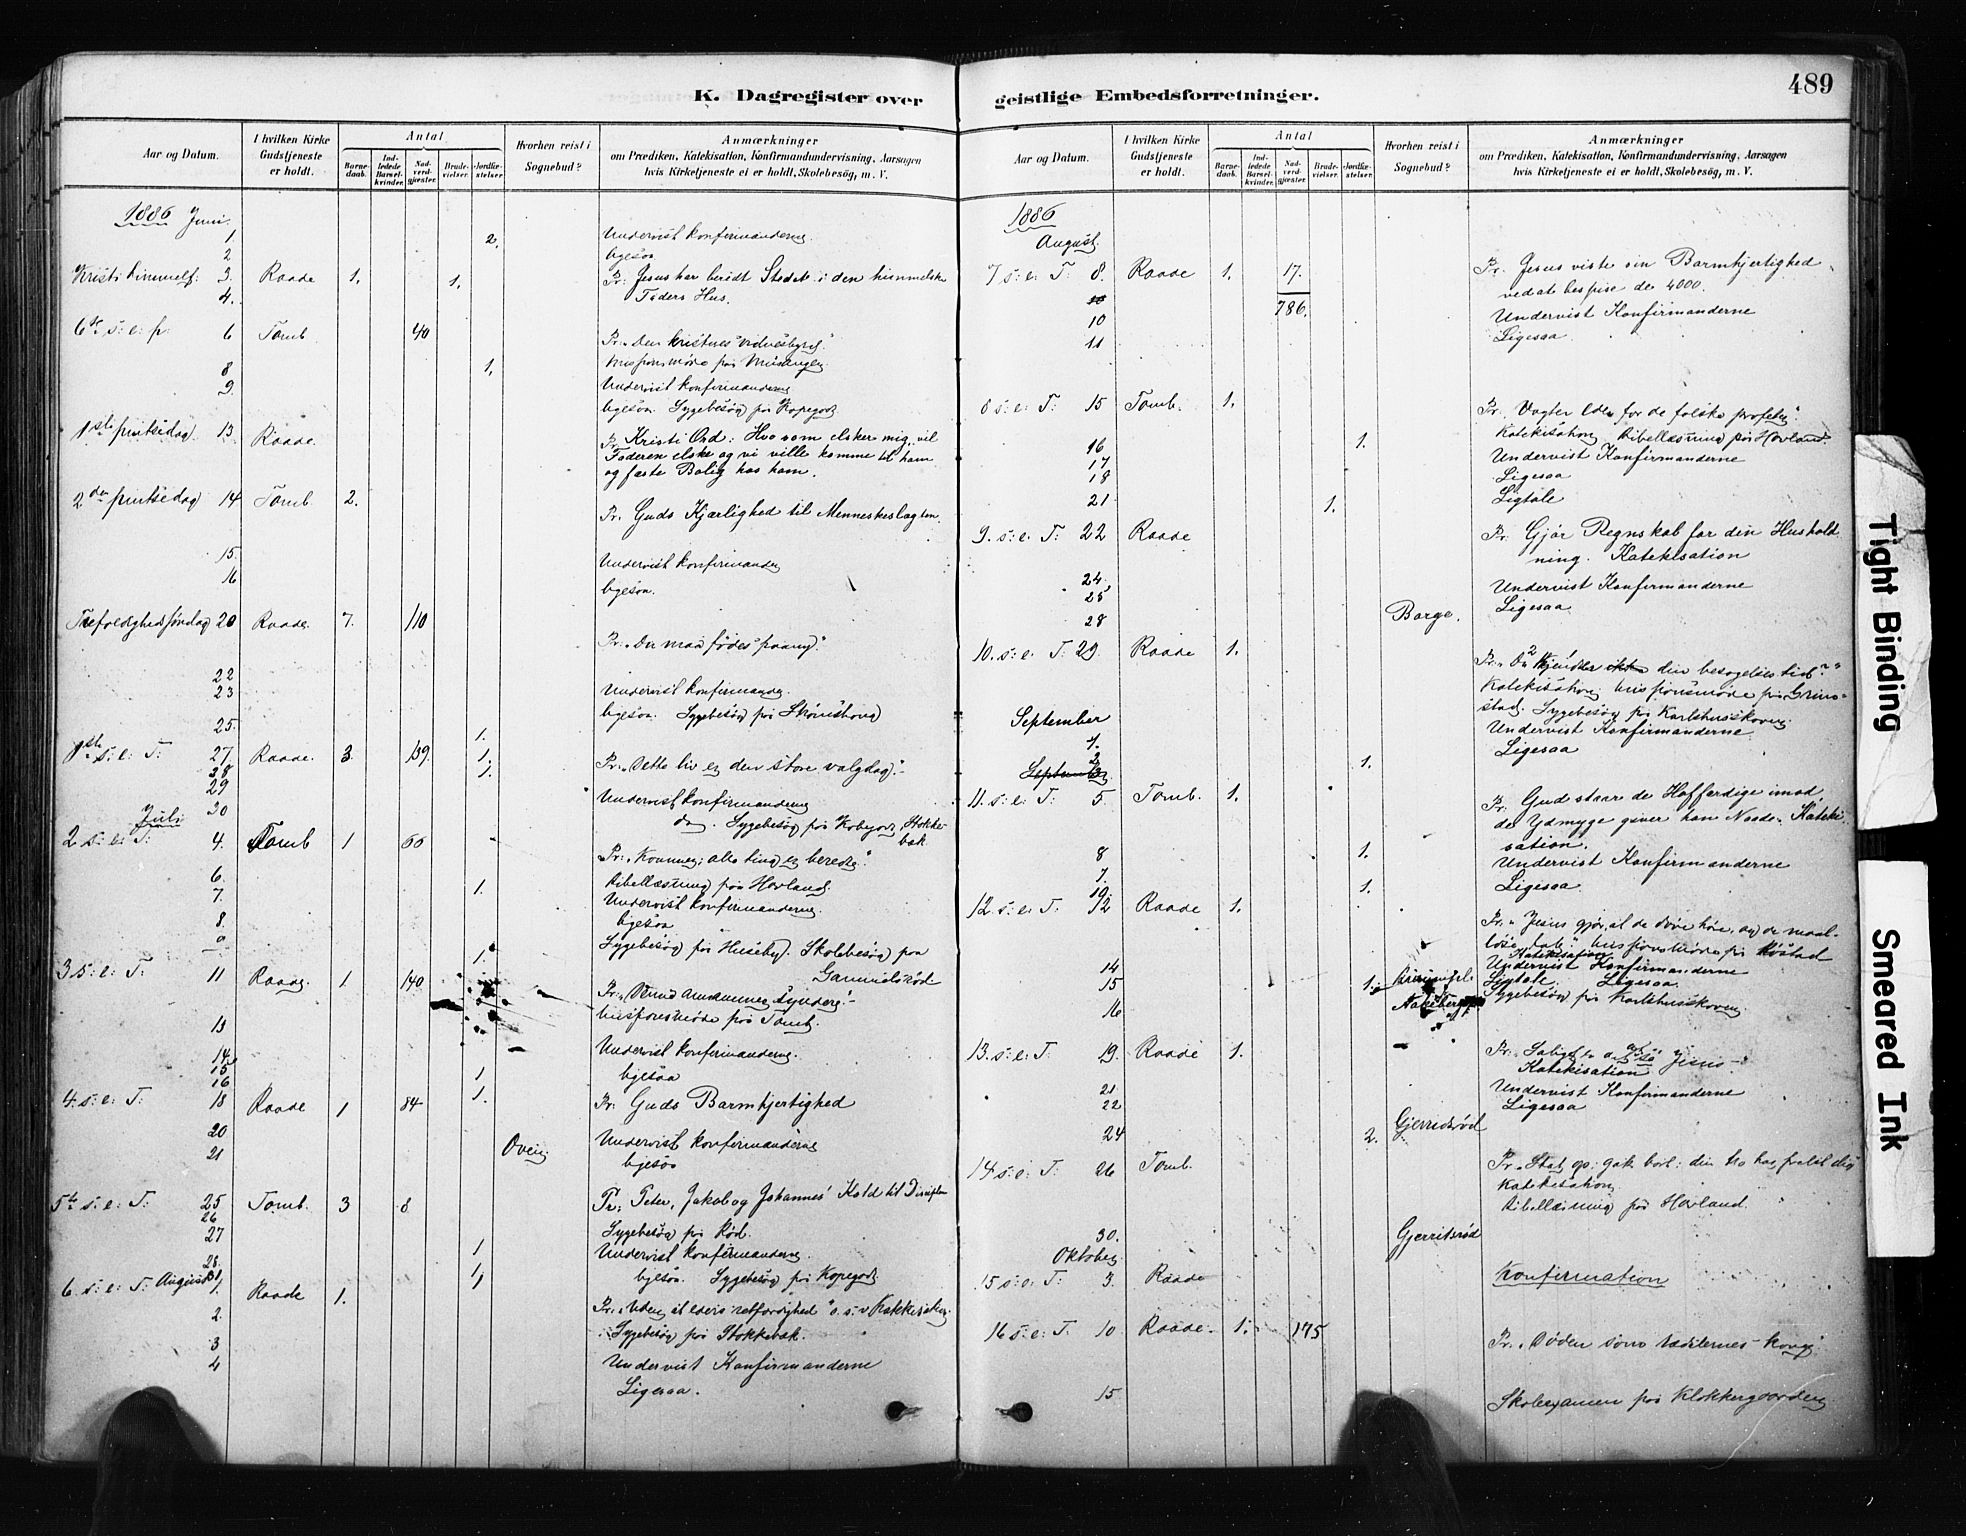 489
K. Dagregister over
geistlige Embedsforretninger.
Aar og Datum.
I hvilken Kirke Gudstjeneste er holdt.
Antal
Barnedaab.
Indledede Barselkvinder.
Nadverdgjæster.
Brudevielser.
Jordfæstelser.
Hvorhen reist i Sognebud?
Anmærkninger
om Prædiken, Katekisation, Konfirmandundervisning, Aarsagen
hvis Kirketjeneste ei er holdt, Skolebesög, m. V.
1886 Juni
1. 2. Undervist Konfirmanderne
2 ligesaa
Kristi himmelf. 3. Raade 1. 1. Pr. Jesus har beredt Stedet i den himmelske
4. Faders Hus.
6te s. e. p. 6 Tomb 40 Pr. Den kristnes vidnesbyrd.
8 1.
9. Undervist Konfirmanderne
ligesaa. Sygebesøg paa Kopegods
1ste pintsedag 13. Raade. Pr. Kristi Ord: Hvo som elsker mig, vil
Faderen elske og vi ville komme til ham
og faste Bolig hos ham.
2den pintsedag 14 Tomb 2. Pr. Guds Kjærlighed til Menneskeslægten.
15. Undervist Konfirmander
16 ligesaa.
Trefoldighedssøndag 20 Raade. 7. 110 Pr. "Der maa fødes paany."
22 Undervist Konfirmander.
23 ligesaa. Sygebesøg paa
25. 1.
1ste s. e. T. 27 Raade. 3 139. 1. Pr. "Dette liv er den store valgdag."
28 1.
29 Undervist Konfirmanderne
30 do. Sygebesøg paa Stokkebæk
Juli
2 s. e. T. 4. Tomb 1 66 Pr. "Kommer; alle ting er beredte."
6. 1. Bibellæsning paa Hovland
7. Undervist Konfirmanderne.
8. ligesaa
1. Sygebesøg paa Huseby. Skolebesøg paa
Gammelsrød
3 s. e. T. 11 Raade. 1 140
Missionsmøde paa Tomb.
13 Undervist Konfirmanderne.
14 ligesaa
15 1
16 1.
4. s. e. T. 18 Raade 1 84 Pr. Guds Barmhjertighed
20 Undervist Konfirmanderne
21 Oven ligesaa
5te s. e. T. 25 Tomb. 3 8 Pr. Peter, Jakob og Johannes' Kald til Disciple
26 Sygebesøg paa Rød.
27 1 Undervist Konfirmanderne.
28. 1, ligesaa. Sygebesøg paa Kopegods
6. s. e. T. August 1. Raade 1. Pr. "Uden at eders retfærdighed" o. s. v.
2. Sygebesøg paa Stokkebæk.
3 Undervist Konfirmanderne
4 Ligesaa.
Aar og Datum.
I hvilken Kirke Gudstjeneste er holdt.
Antal
Barnedaab.
Indledede Barselkvinder.
Nadverdgjæster.
Brudevielser.
Jordfæstelser.
Hvorhen reist i Sognebud?
Anmærkninger
om Prædiken, Katekisation, Konfirmandundervisning, Aarsagen
hvis Kirketjeneste ei er holdt, Skolebesög, m. V.
1886
August.
7 s. e. T. 8. Raade 1. 17. Pr. Jesus viste sin Barmhjertighed
786. ved at bespise de 4000.
10 Undervist Konfirmanderne
11 Ligesaa.
8 s. e. T. 15 Tomb. 1. Pr. Vogter Eder for de falske profeter"
Katekisation Bibellæsning paa Hovland.
16 1.
17 Undervist Konfirmanderne
18 Ligesaa
21 1. Ligtale
9. s. e. T. 22 Raade Pr. Gjør Regnskab for din Hushold
ning. Katekisation
24. Undervist Konfirmanderne
25 Ligesaa
28 Borge.
10. s. e. T. 29. Raade 1. Pr. din besøgelses tid?"
Katekisation, Missionsmøde paa Grim-
stad. Sygebesøg paa Karlshusskoven.
September
1. Undervist Konfirmanderne.
2 Ligesaa
3 1.
11. s. e. T. 5. Tomb. 1. Pr. Gud staar de Hoffærdige imod
de Ydmyge giver han Naade. Kateki
sation.
8 1. Undervist Konfirmanderne
7. Ligesaa.
10. 1.
12. s. e. T. 12 Raade 1. Pr. "Jesus gjør, at de døve høre, og de maal-
løse tale." Missionsmøde paa
Katekisation
14 Undervist Konfirmanderne
15 1. Ligtale Ligesaa.
16 Sygebesøg paa Karlshusskoven.
13. s. e. T. 19. Raade 1. Pr.
Katekisation
21. Undervist Konfirmanderne
22 Ligesaa
24 2. Gjerridsrød
14 s. e. T. 26 Tomb. Pr. "Stat op: gak bort: din tro har frelst dig
Katekisation
Bibellæsning paa Hovland.
30. Gjerritsrød
Oktober
15 s. e. T. 3. Raade Konfirmation
16 s. e. T. 10. Raade. 1. 175 Pr. "Døden som rædslernes konge"
15 Skolexamen paa Klokkergaarden
Tight Binding
Smeared Ink